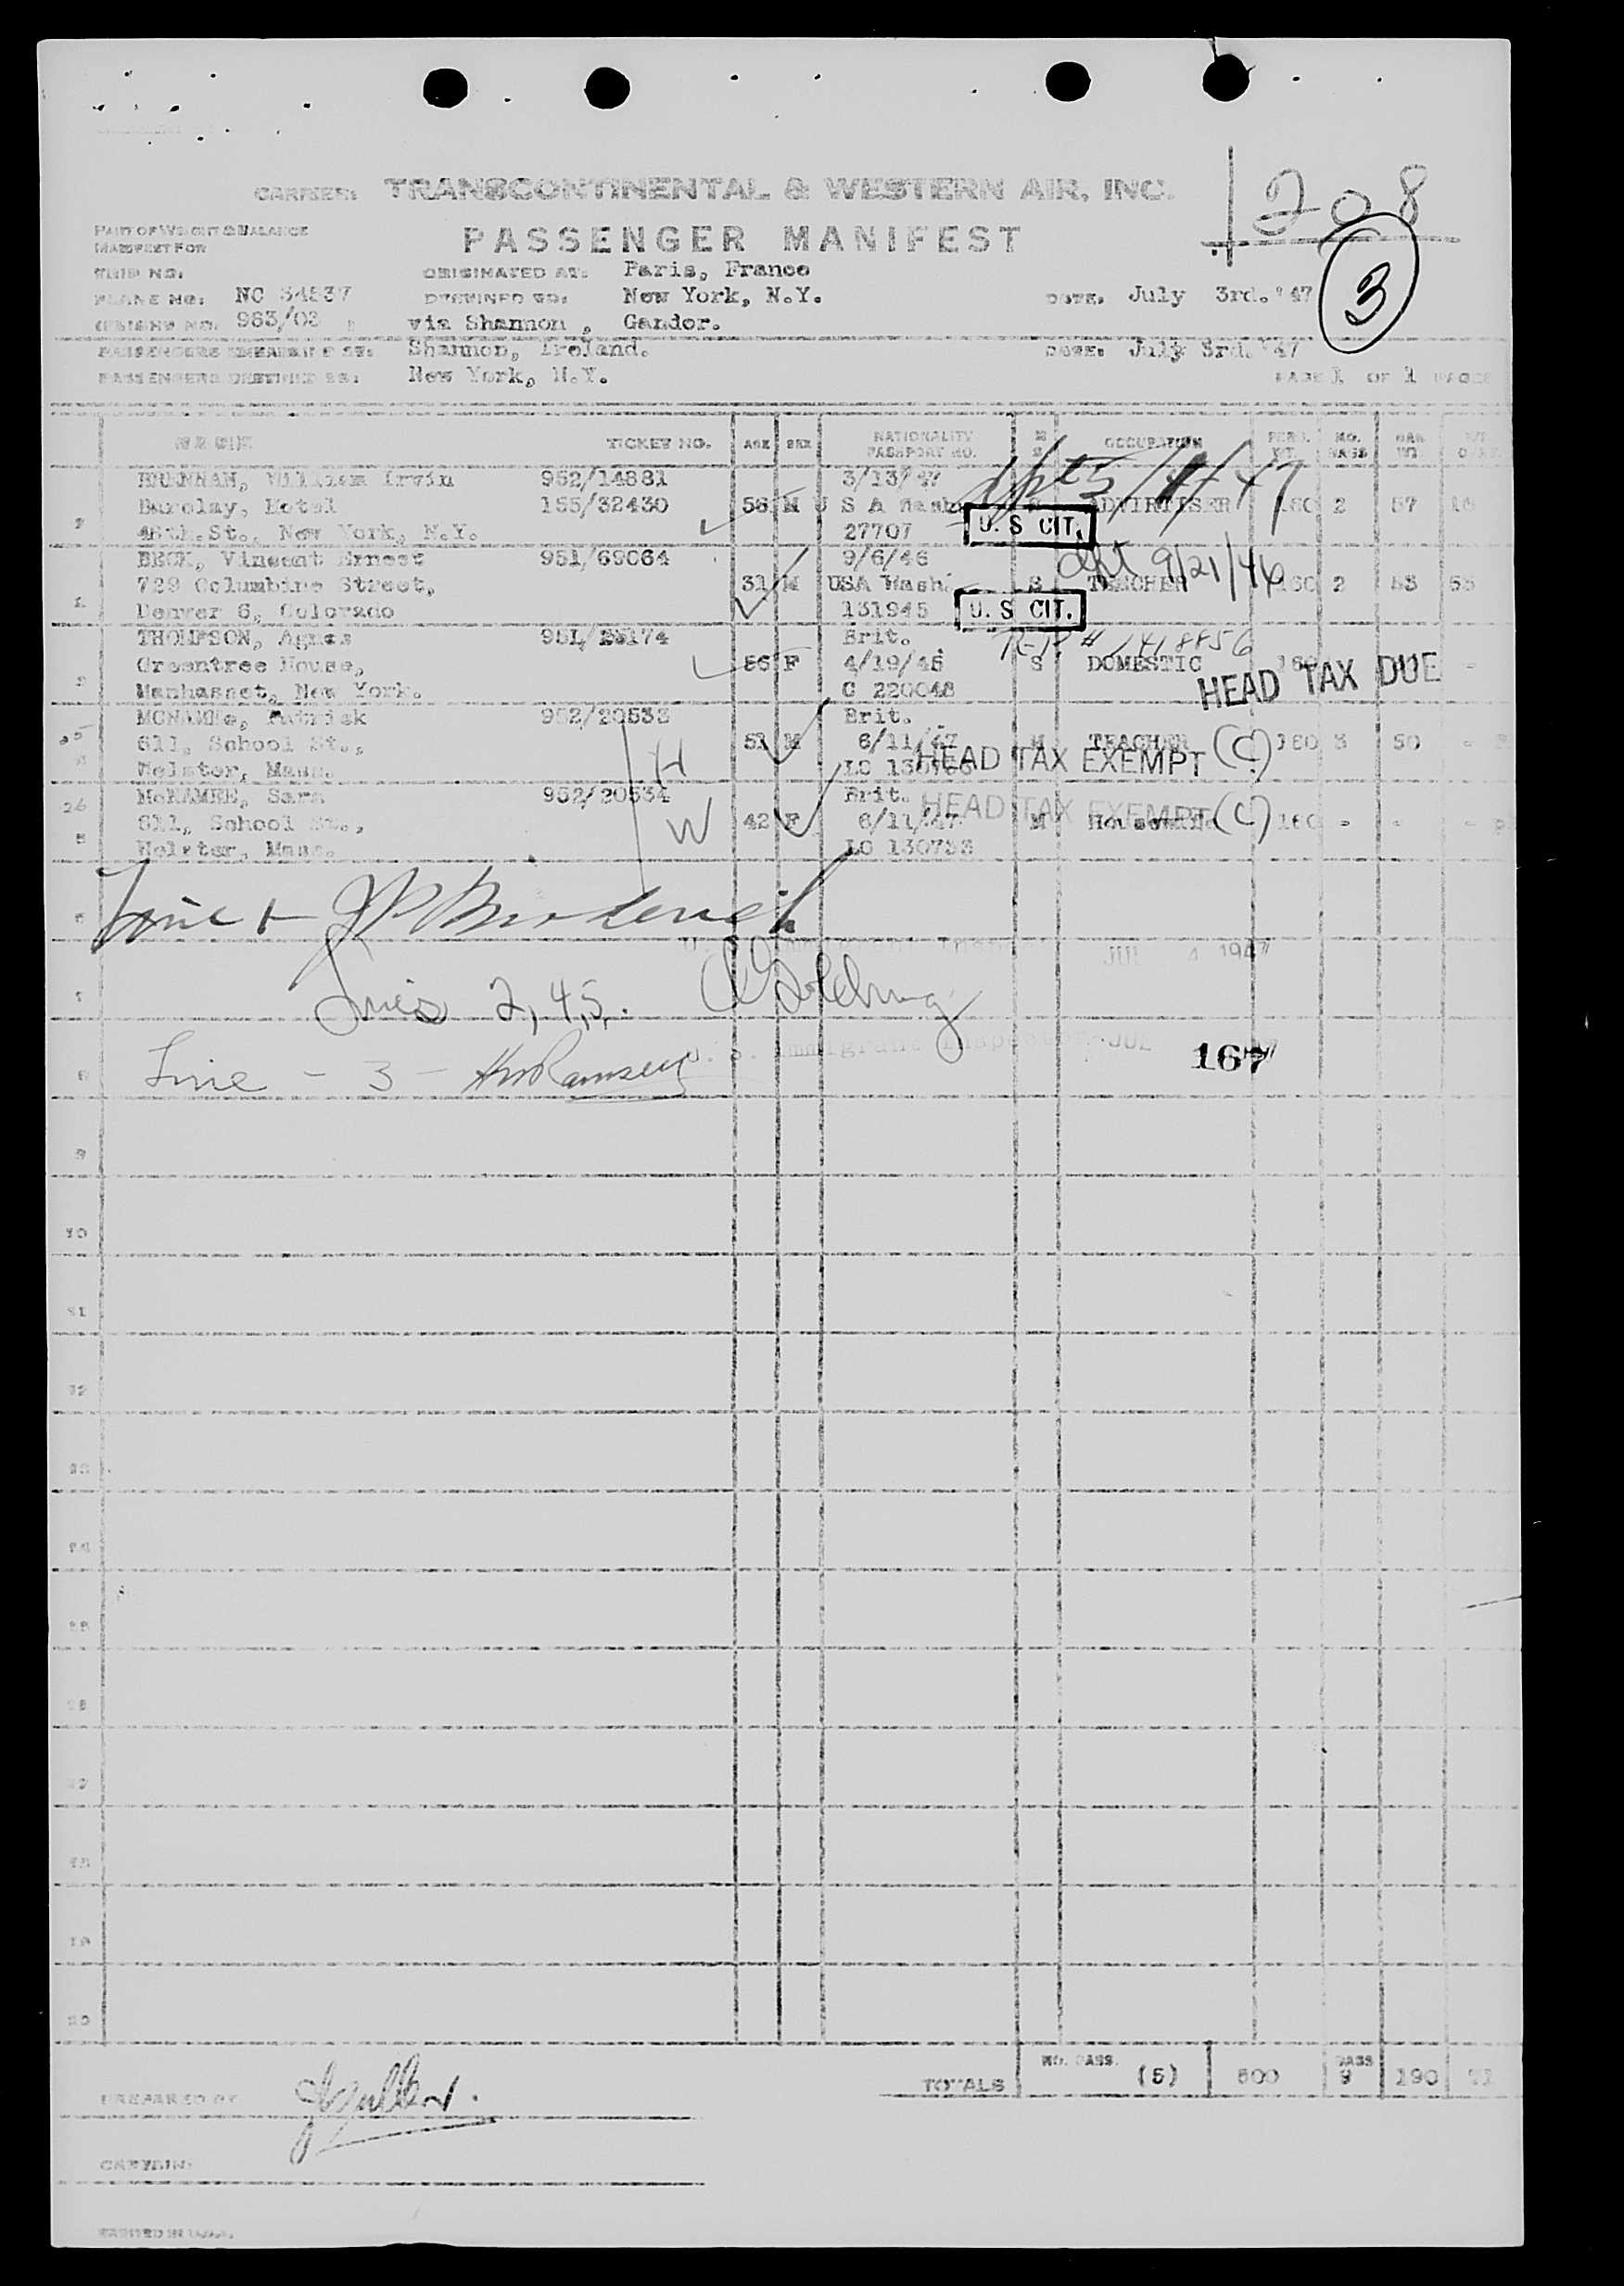 208
CARRIER: TRANSCONTINENTAL & WESTERN AIR, INC.
PART OF WEIGHT & BALANCE
MANIFEST FOR
PASSENGER MANIFEST
3
TRIP NO:
ORIGINATED AT: Paris, France
PLANE NO: NC 34537
DESTINED TO: New York, N.Y.
DATE: July 3rd. '47
FLIGHT NO. 963/03
via Shannon, Gander.
PASSENGERS EMBARKING AT: Shannon, Ireland.
DATE: July 3rd. '47
PASSENGERS DESTINED TO: New York, N.Y.
PAGE 1 OF 1 PAGES
NAME TICKET NO. AGE SEX NATIONALITY PASSPORT NO. M S OCCUPATION PERS. WT. NO. BAGS BAG WT
BRENNAN, William Irvin 952/14881 3/13/47 dpt 5/1/47
Barclay, Hotel 155/32430 56 M U S A Wash. ADVIRTISER 160 2 57 16
48th.St., New York, N.Y. 27707 U. S CIT.
BECK, Vincent Ernest 951/69064 9/6/46 dpt 9/21/46
2 729 Columbine Street, 31 M USA Wash. S TEACHER 160 2 83 55
Denver 6, Colorado 131945 U. S CIT.
THOMPSON, Agnes 951/ Brit. R-P # 1418856
3 Greentree House, 56 F 4/19/46 S DOMESTIC 160 -
Manhasset, New York. C 220048 HEAD TAX DUE
MCNAMEe, Patrick 952/20533 Brit.
611, School St., H 51 M 6/11/47 M TEACHER (C) 160 5 50 -
Welster, Mass. HEAD TAX EXEMPT
26 McNAMEE, Sara 952/20534 Brit. HEAD TAX EXEMPT (C)
5 611, School St., W 42 F 6/11/47 M Housewife 160 - - -
Welster, Mass. LO 130733
6 Line 1-
JUL 4 1947
7 Lines 2, 4, 5.
8 Line - 3 - Ramsey U. S. Immigrant Inspector JUL
167
9
10
11
12
13
14
15
16
17
18
19
20
TOTALS NO. PASS. (5) 800 BAGS 9 190 71
PREPARED BY
CAPTAIN:
PRINTED IN U.S.A.